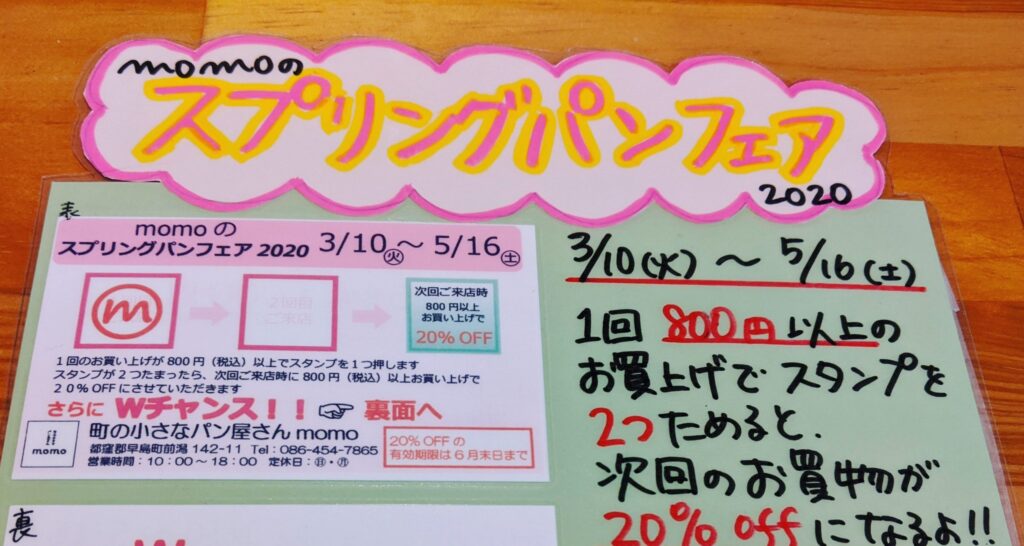 momoの
スプリングパンフェア
2020
表
momo の
スプリングパンフェア 2020 3/10㊋～ 5/16㊏
m
2回目
ご来店
次回ご来店時
800円以上
お買い上げで
20% OFF
1回のお買い上げが800円（税込）以上でスタンプを1つ押します
スタンプが2つたまったら、次回ご来店時に800円（税込）以上お買い上げで
20％OFFにさせていただきます
さらに Wチャンス！！ 裏面へ
momo
町の小さなパン屋さん momo
都窪郡早島町前潟 142-11 Tel：086-454-7865
営業時間：10：00～18：00 定休日：㊐・㊊
20% OFF の
有効期限は6月末日まで
3/10(火) ～ 5/16(土)
1回 800円以上の
お買上げで スタンプを
2つためると、
次回のお買物が
20% offになるよ!!
裏